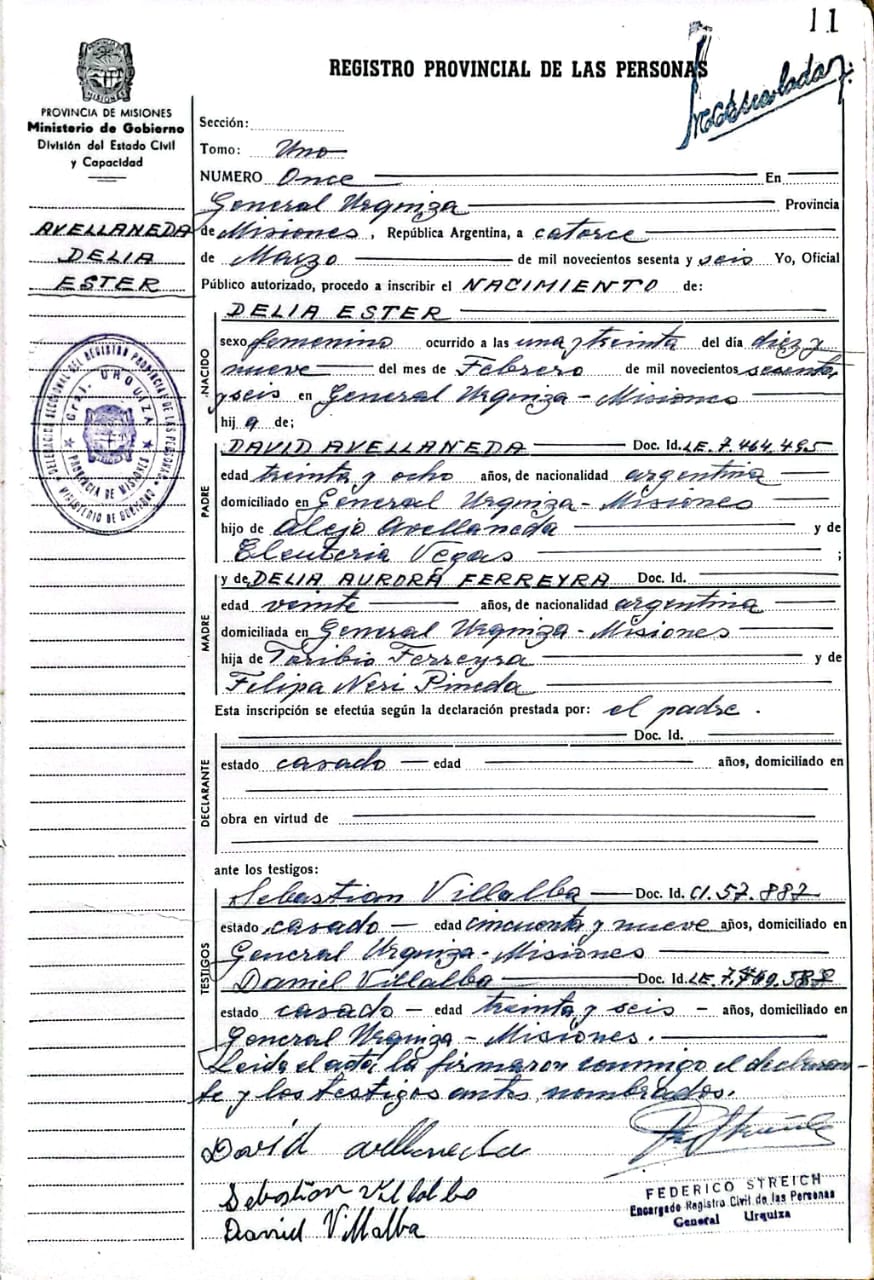 11
REGISTRO PROVINCIAL DE LAS PERSONAS
PROVINCIA DE MISIONES
Ministerio de Gobierno
División del Estado Civil
y Capacidad
AVELLANEDA
DELIA
ESTER
DELEGACION SECCIONAL DEL REGISTRO PROVINCIAL DE LAS PERSONAS
Gral. URQUIZA
PROVINCIA DE MISIONES
MINISTERIO DE GOBIERNO
Sección:
Tomo: Uno
NUMERO Once En
General Urquiza Provincia
de Misiones, República Argentina, a catorce
de Marzo de mil novecientos sesenta y seis Yo, Oficial
Público autorizado, procedo a inscribir el NACIMIENTO de:
NACIDO
DELIA ESTER
sexo femenino ocurrido a las una y treinta del día diez y
nueve del mes de Febrero de mil novecientos sesenta
y seis en General Urquiza - Misiones
hij a de;
PADRE
DAVID AVELLANEDA Doc. Id. LE. 7.464.495
edad treinta y ocho años, de nacionalidad argentina
domiciliado en General Urquiza - Misiones
hijo de Alejo Avellaneda y de
Eleuteria Vegas ;
MADRE
y de DELIA AURORA FERREYRA Doc. Id.
edad veinte años, de nacionalidad argentina
domiciliada en General Urquiza - Misiones
hija de Toribio Ferreyra y de
Filipa Neri Pineda
Esta inscripción se efectúa según la declaración prestada por: el padre.
DECLARANTE
Doc. Id.
estado casado edad años, domiciliado en
obra en virtud de
ante los testigos:
TESTIGOS
Sebastian Villalba Doc. Id. CI. 57.887
estado casado edad cincuenta y nueve años, domiciliado en
General Urquiza - Misiones
Daniel Villalba Doc. Id. LE.
estado casado - edad treinta y seis - años, domiciliado en
General Urquiza - Misiones.
Leida el acta, la firmaron conmigo el declaran-
te y los testigos antes nombrados.
David avellaneda
Sebastian Villalba
Daniel Villalba
FEDERICO STREICH
Encargado Registro Civil de las Personas
General Urquiza